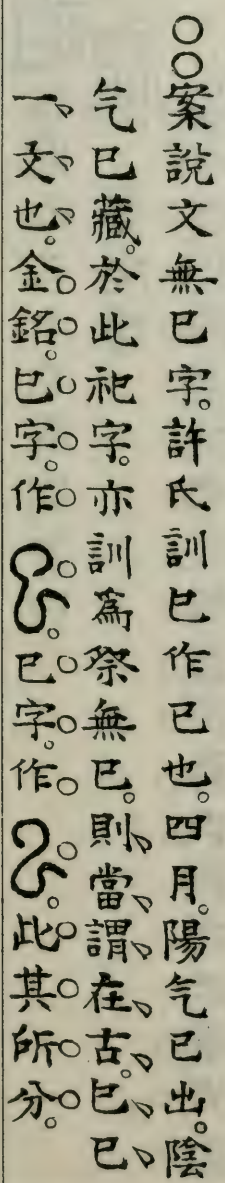 ○○案說文無已字。許氏訓巳作已也。四月。陽气已出。陰
气已藏。於此祀字。亦訓爲祭無已。則當謂在古。巳已
一文也。金銘。巳字。作。已字。作。此其所分。